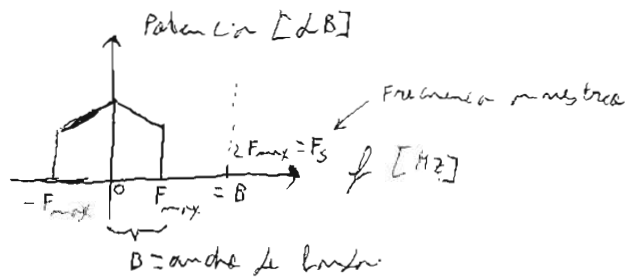 Potencia [dB]
Frecuencia muestreo
2 Fmax = Fs
f [Hz]
-Fmax 0 Fmax = B
B = ancho de banda.